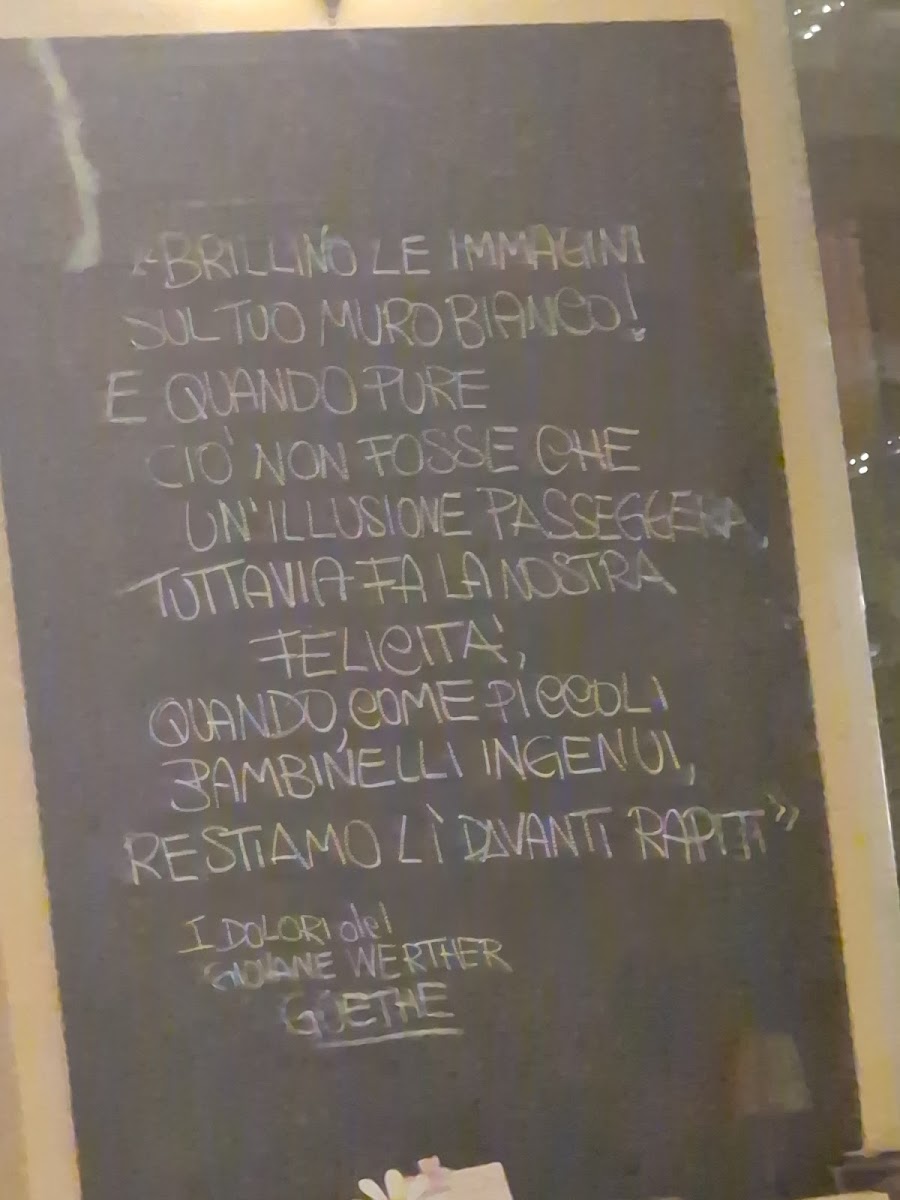 "BRILLINO LE IMMAGINI
SUL TUO MURO BIANCO!
E QUANDO PURE
CIO' NON FOSSE CHE
UN'ILLUSIONE PASSEGGERA,
TUTTAVIA FA LA NOSTRA
FELICITA',
QUANDO, COME PICCOLI
BAMBINELLI INGENUI,
RESTIAMO LÌ DAVANTI RAPITI"
I DOLORI del
GIOVANE WERTHER
GOETHE